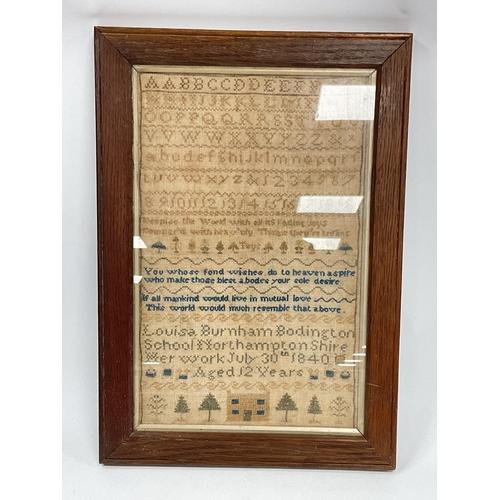 AABBCCDDEEF
HHIIJJKKLLMM
OOPPQQRRSS
VVWWXXYYZZ&
abcdefghijklmnopqr
tuvwxyz&1234
8910111213141516
Despise the World with all its Fading Joys
Compar'd with heav'nly Things they're trifling
Toys
You whose fond wishes do to heaven aspire
who make those blest abodes your sole desire
If all mankind would live in mutual love
This world would much resemble that above.
Louisa Burnham Bodington
School Northampton Shire
Her work July 30th 1840
Aged 12 Years